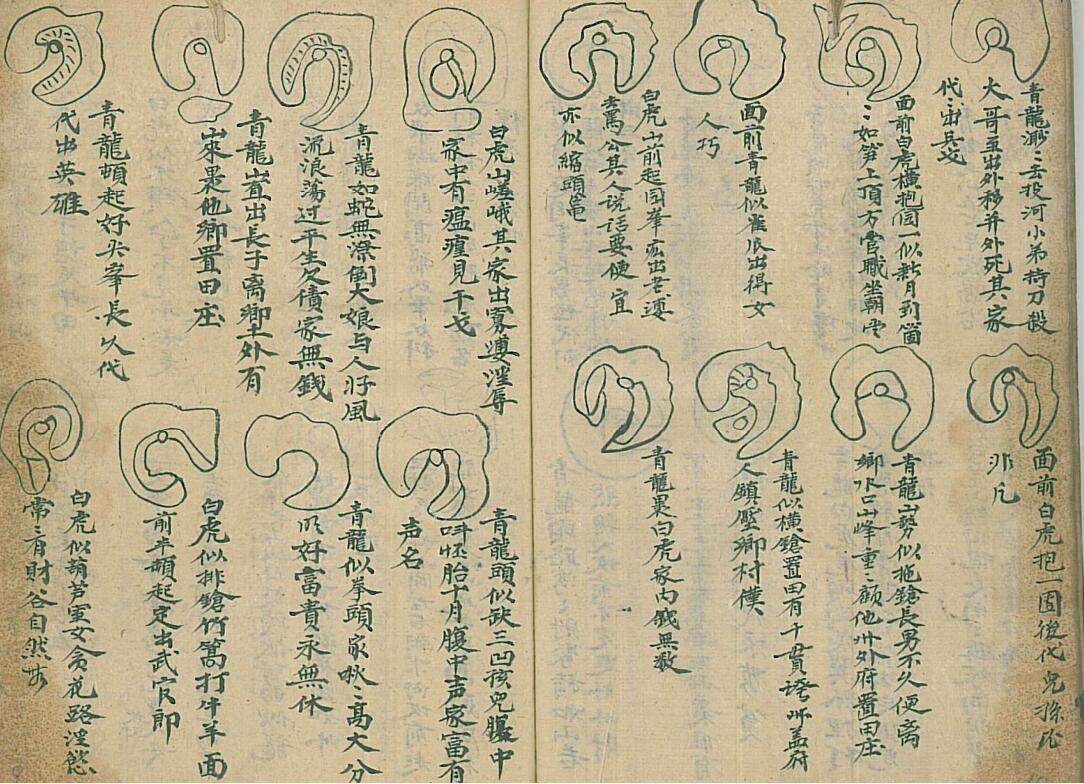 青龍渺〻去投河小弟持刀殺
大哥並出外移并外死其家
代〻出兵戈
面前白虎橫抱間一似新月到箇
〻如笋上頂方官職坐朝中
面前青龍似雀底出得女
人巧
白虎山前起同峯出老婆
罵公其人说話要便宜
亦似縮頭
面前白虎抱一固後代兒孫
非凡
青龍山勢似拖鎗長男不久便离
鄉水口山峰重〻顧他州外府置田庄
青龍似横鎗置田有千貫
人鎮壓鄉村僕
青龍裹白虎家内錢無数
白虎山嵯峨其家出寡婆淫辱
家中有瘟瘟見干戈
青龍如蛇無深倒大娘与人好風
流浪蕩过平生欠債家無錢
青龍山直出長子离鄉土外有
山來裹他鄉置田庄
青龍頓起好尖峯長以代
代出英雄
青龍頭似缺三凹孩兒腹中
叫怀胎十月腹中声家富有
声名
青龍似拳頭家〻高大分
明好富貴永無休
白虎似排鎗竹篙打牛羊面
前半頓起定出武官郎
白虎似葫芦室女贪花路淫慾
常〻有財谷自然